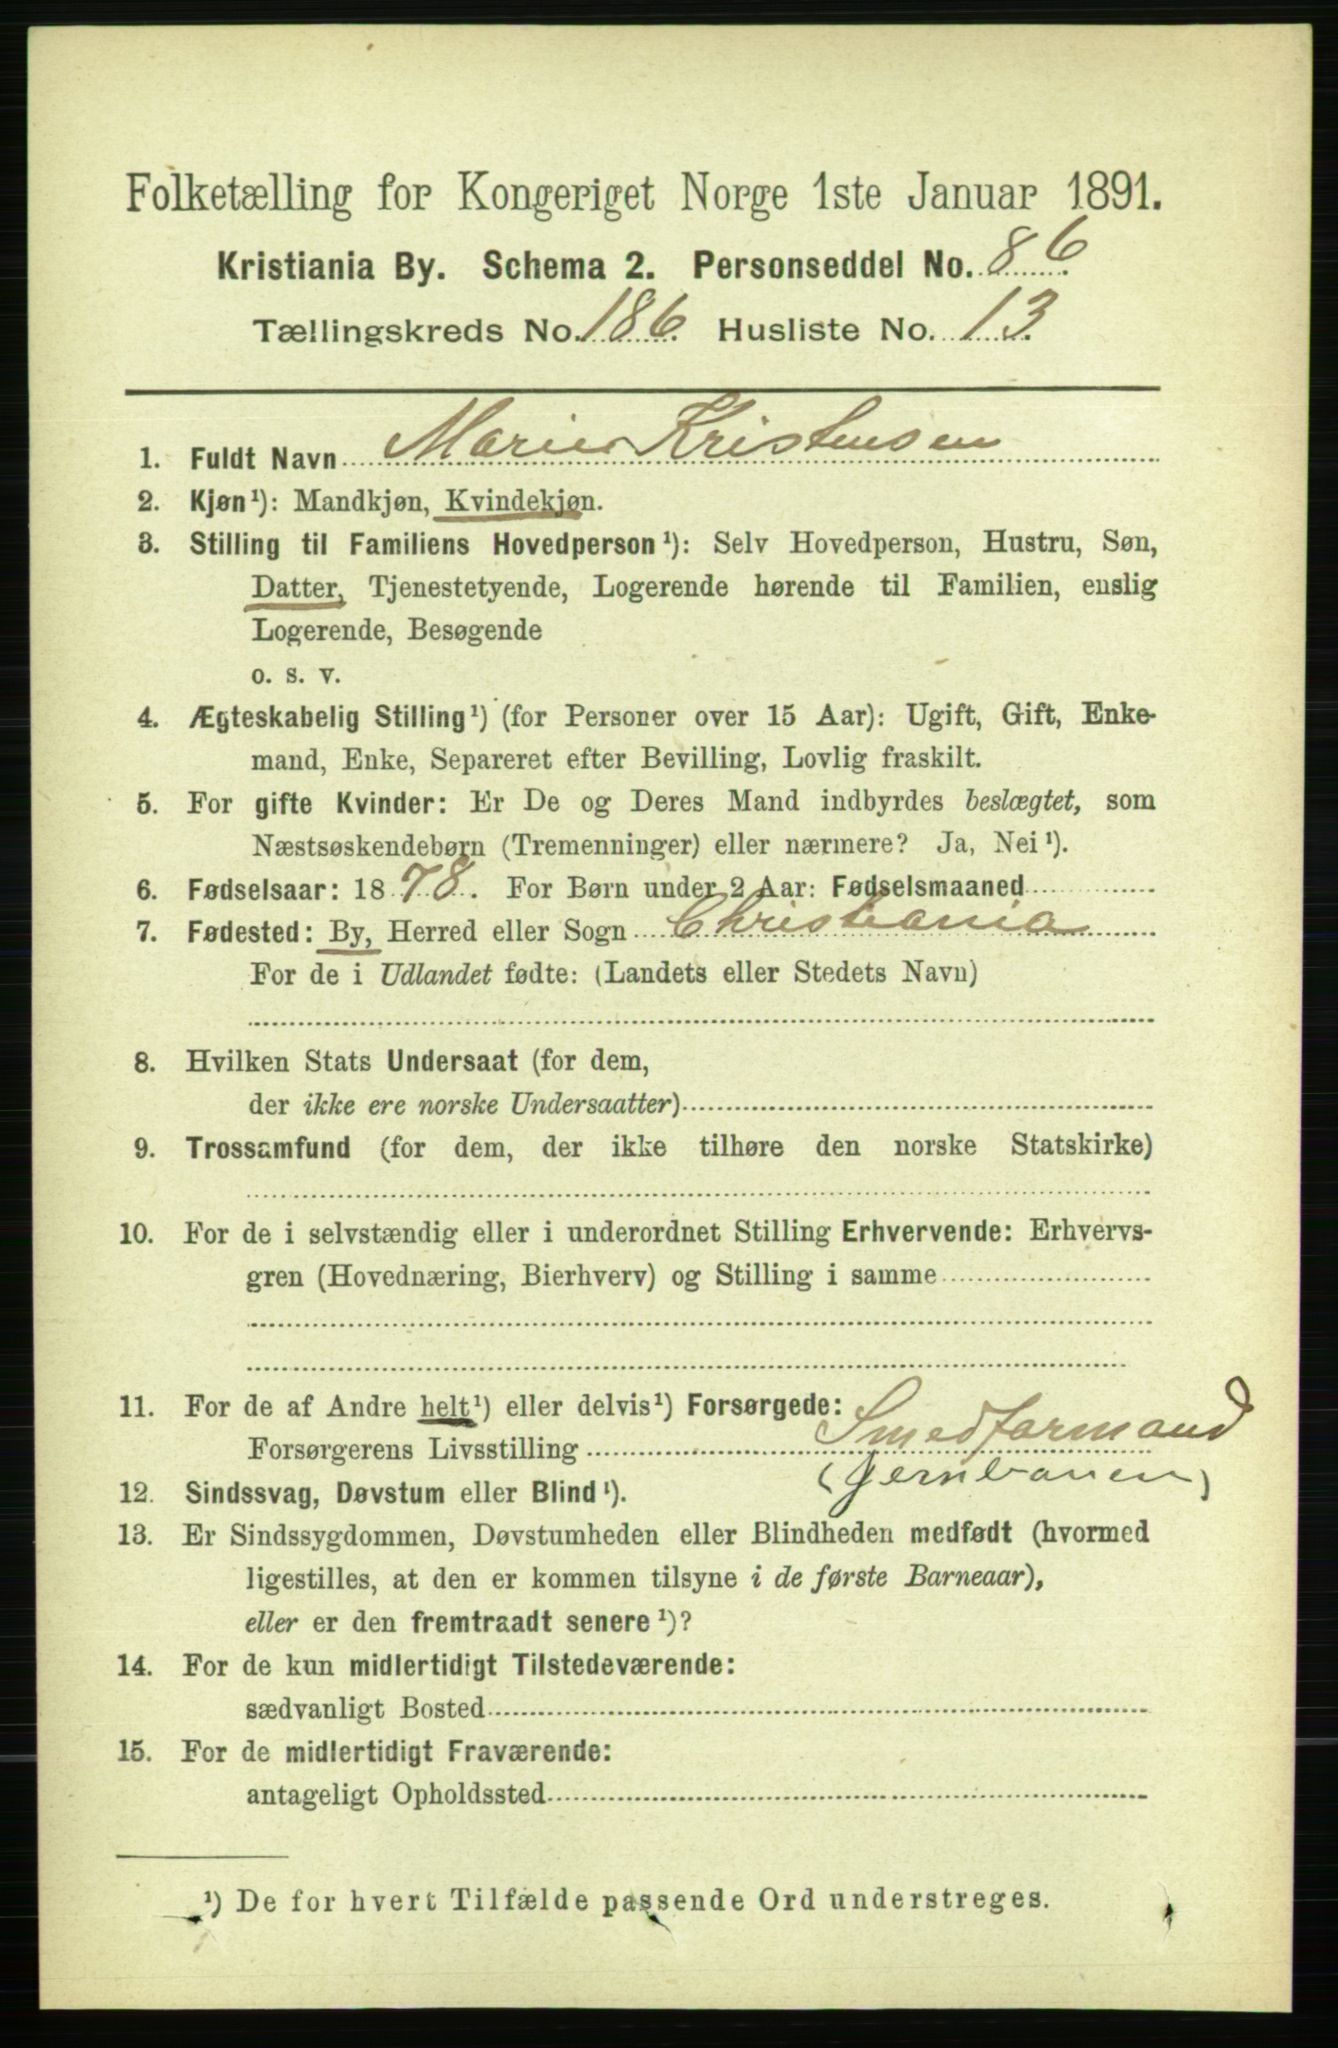 Folketælling for Kongeriget Norge 1ste Januar 1891.
Kristiania By. Schema 2. Personseddel No. 86
Tællingskreds No. 186. Husliste No. 13.
1. Fuldt Navn Marie Kristensen
2. Kjøn¹): Mandkjøn, Kvindekjøn.
3. Stilling til Familiens Hovedperson¹): Selv Hovedperson, Hustru, Søn,
Datter, Tjenestetyende, Logerende hørende til Familien, enslig
Logerende, Besøgende
o. s. v.
4. Ægteskabelig Stilling¹) (for Personer over 15 Aar): Ugift, Gift, Enke-
mand, Enke, Separeret efter Bevilling, Lovlig fraskilt.
5. For gifte Kvinder: Er De og Deres Mand indbyrdes beslægtet, som
Næstsøskendebørn (Tremenninger) eller nærmere? Ja, Nei¹).
6. Fødselsaar: 1878. For Børn under 2 Aar: Fødselsmaaned
7. Fødested: By, Herred eller Sogn Christiania
For de i Udlandet fødte: (Landets eller Stedets Navn)
8. Hvilken Stats Undersaat (for dem,
der ikke ere norske Undersaatter)
9. Trossamfund (for dem, der ikke tilhøre den norske Statskirke)
10. For de i selvstændig eller i underordnet Stilling Erhvervende: Erhvervs-
gren (Hovednæring, Bierhverv) og Stilling i samme
11. For de af Andre helt¹) eller delvis¹) Forsørgede:
Forsørgerens Livsstilling Smedformand
(Jernbanen)
12. Sindssvag, Døvstum eller Blind¹).
13. Er Sindssygdommen, Døvstumheden eller Blindheden medfødt (hvormed
ligestilles, at den er kommen tilsyne i de første Barneaar),
eller er den fremtraadt senere¹)?
14. For de kun midlertidigt Tilstedeværende:
sædvanligt Bosted
15. For de midlertidigt Fraværende:
antageligt Opholdssted
¹) De for hvert Tilfælde passende Ord understreges.